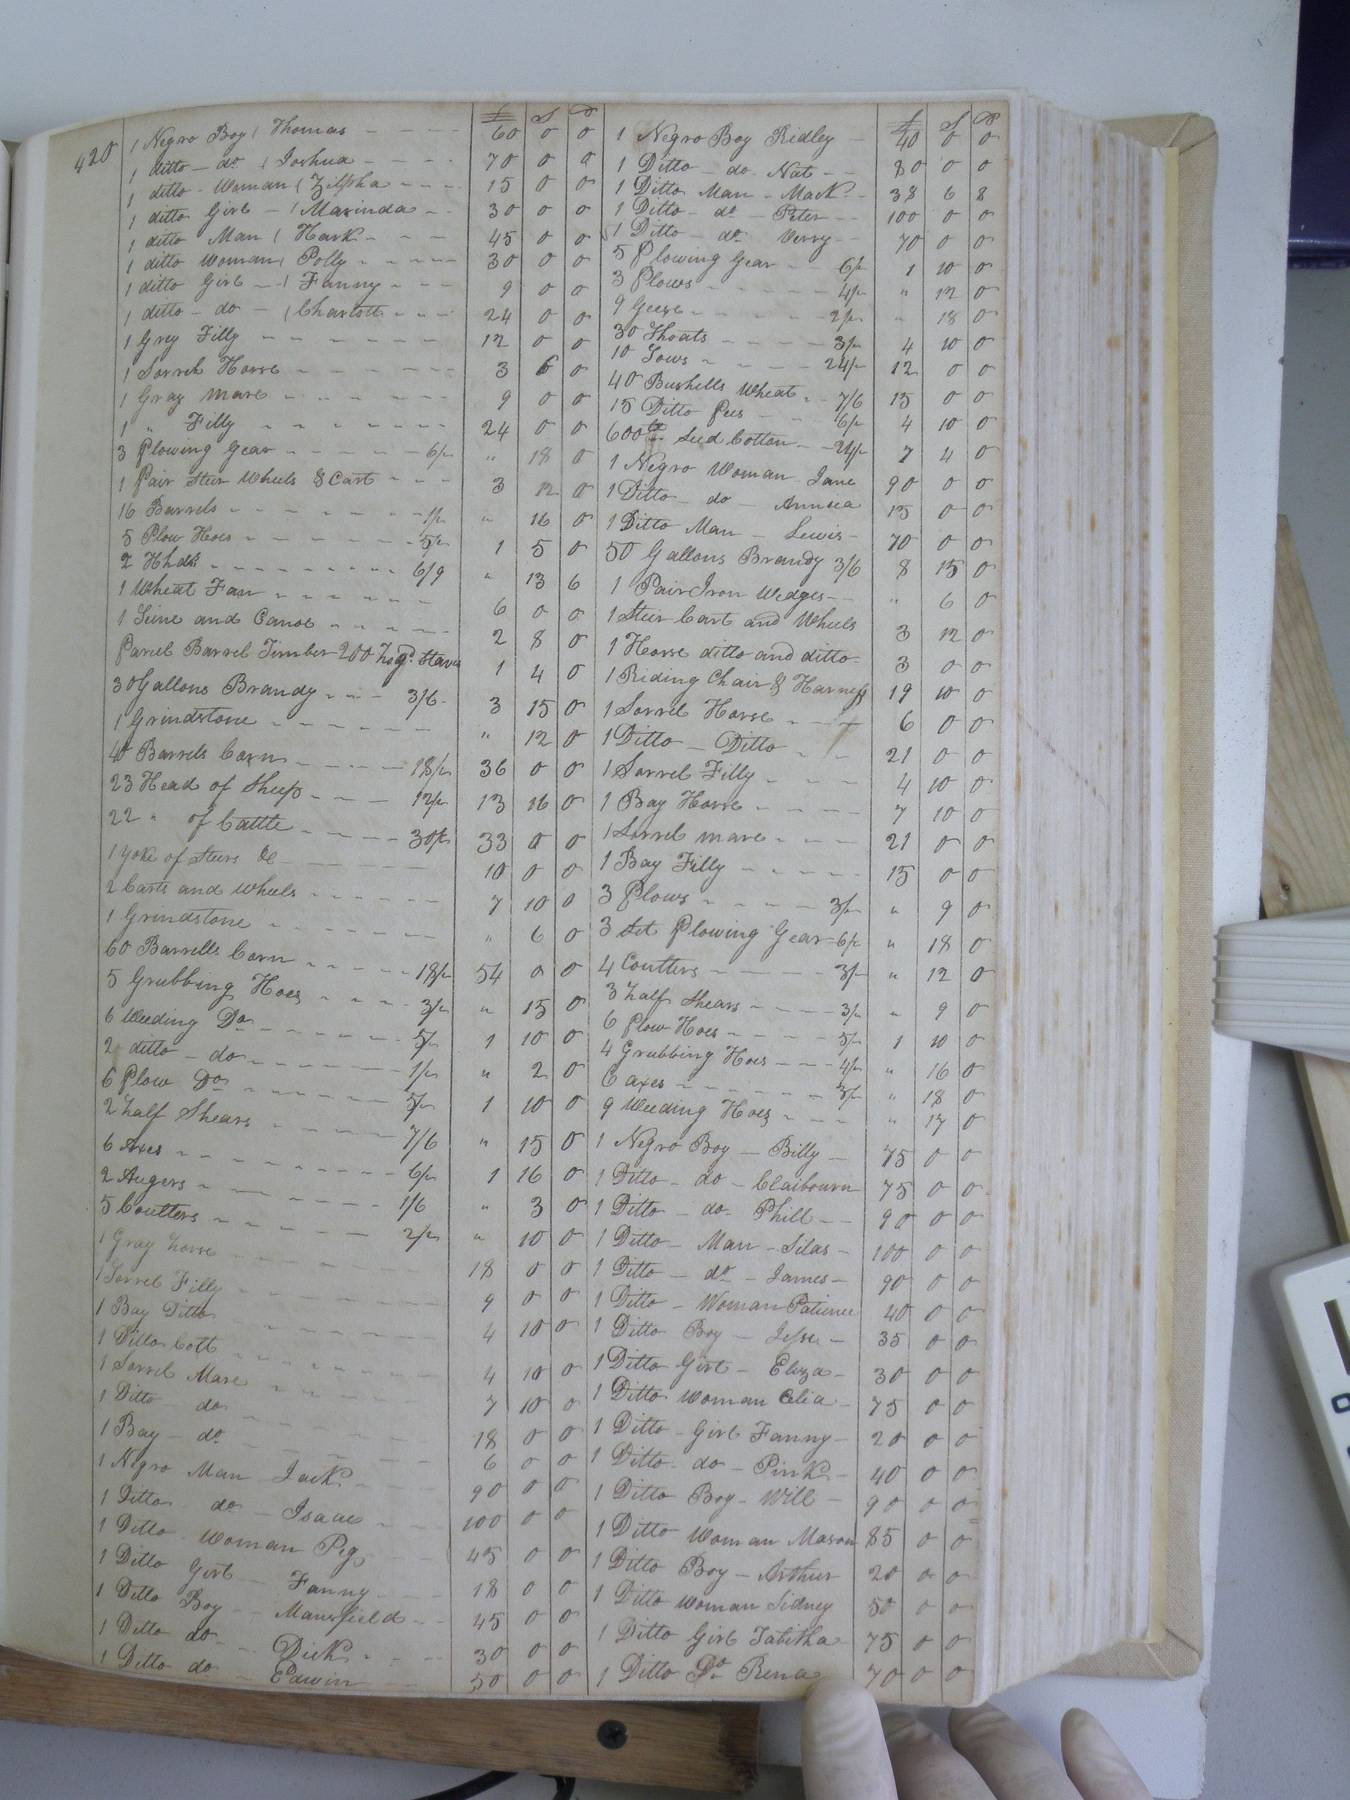 420
£ S D
1 Negro Boy ( Thomas 60 0 0
1 ditto - do ( Joshua 70 0 0
1 ditto - Woman ( Zilpha 15 0 0
1 ditto Girl - ( Marinda 30 0 0
1 ditto Man ( Hark 45 0 0
1 ditto Woman ( Polly 30 0 0
1 ditto Girl - ( Fanny 9 0 0
1 ditto - do - ( Charlott 24 0 0
1 Grey Filly 12 0 0
1 Sorrel Horse 3 6 0
1 Gray Mare 9 0 0
1 " Filly 24 0 0
3 Plowing Gear 6/- " 18 0
1 Pair Steer Wheels & Cart 3 12 0
16 Barrels 1/- " 16 0
5 Plow Hoes 5/- 1 5 0
2 Hhds 6/9 " 13 6
1 Wheat Fan 6 0 0
1 Seine and Canoe 2 8 0
Parcel Barrel Timber 200 hogd. Staves 1 4 0
30 Gallons Brandy 3/6 3 15 0
1 Grindstone " 12 0
40 Barrels Corn 18/- 36 0 0
23 Head of Sheep 12/- 13 16 0
22 " of Cattle 30/- 33 0 0
1 Yoke of Steers &c 10 0 0
2 Carts and Wheels 7 10 0
1 Grindstone " 6 0
60 Barrells Corn 18/- 54 0 0
5 Grubbing Hoes 3/- " 15 0
6 Weeding Do 5/- 1 10 0
2 ditto - do 1/- " 2 0
6 Plow Do 5/- 1 10 0
2 half Shears 7/6 " 15 0
6 Axes 6/- 1 16 0
2 Augers 1/6 " 3 0
5 Coulters 2/- " 10 0
1 Gray horse 18 0 0
1 Sorrel Filly 9 0 0
1 Bay Ditto 4 10 0
1 Ditto Colt 4 10 0
1 Sorrel Mare 7 10 0
1 Ditto do 18 0 0
1 Bay - do 6 0 0
1 Negro Man Jack 90 0 0
1 Ditto do - Isaac 100 0 0
1 Ditto Woman Peg 45 0 0
1 Ditto Girl - Fanny 18 0 0
1 Ditto Boy - Mansfield 45 0 0
1 Ditto do - Dick 30 0 0
1 Ditto do - Edwin 50 0 0
£ S D
1 Negro Boy Ridley 40 0 0
1 Ditto - do - Nat 80 0 0
1 Ditto Man - Mack 38 6 8
1 Ditto - do - Peter 100 0 0
1 Ditto - do 70 0 0
5 Plowing Gear 6/- 1 10 0
3 Plows 4/- " 12 0
9 Geese 2/- " 18 0
30 Shoats 3/- 4 10 0
10 Sows 24/- 12 0 0
40 Bushells Wheat 7/6 15 0 0
15 Ditto Pees 6/- 4 10 0
600 lb Seed Cotton 24/- 7 4 0
1 Negro Woman Jane 90 0 0
1 Ditto - do - 15 0 0
1 Ditto Man - Lewis 70 0 0
50 Gallons Brandy 3/6 8 15 0
1 Pair Iron Wedges " 6 0
1 Steer Cart and Wheels 3 12 0
1 Horse ditto and ditto 3 0 0
1 Riding Chair & Harness 19 10 0
1 Sorrel Horse 6 0 0
1 Ditto - Ditto 21 0 0
1 Sorrel Filly 4 10 0
1 Bay Horse 7 10 0
1 Sorrel mare 21 0 0
1 Bay Filly 15 0 0
3 Plows 3/- " 9 0
3 Set Plowing Gear 6/- " 18 0
4 Coulters 3/- " 12 0
3 half Shears 3/- " 9 0
6 Plow Hoes 5/- 1 10 0
4 Grubbing Hoes 4/- " 16 0
6 axes 3/- " 18 0
9 Weeding Hoes " 17 0
1 Negro Boy - Billy 75 0 0
1 Ditto - do - Claibourn 75 0 0
1 Ditto - do - Phill 90 0 0
1 Ditto - Man - Silas 100 0 0
1 Ditto - do - James 90 0 0
1 Ditto - Woman Patience 40 0 0
1 Ditto Boy - Jesse 35 0 0
1 Ditto Girl - Eliza 30 0 0
1 Ditto Woman Celia 75 0 0
1 Ditto - Girl Fanny 20 0 0
1 Ditto - do - Pink 40 0 0
1 Ditto Boy - Will 90 0 0
1 Ditto Woman Mason 85 0 0
1 Ditto Boy - Arthur 20 0 0
1 Ditto Woman Sidney 50 0 0
1 Ditto Girl Tabitha 75 0 0
1 Ditto Do Rena 70 0 0